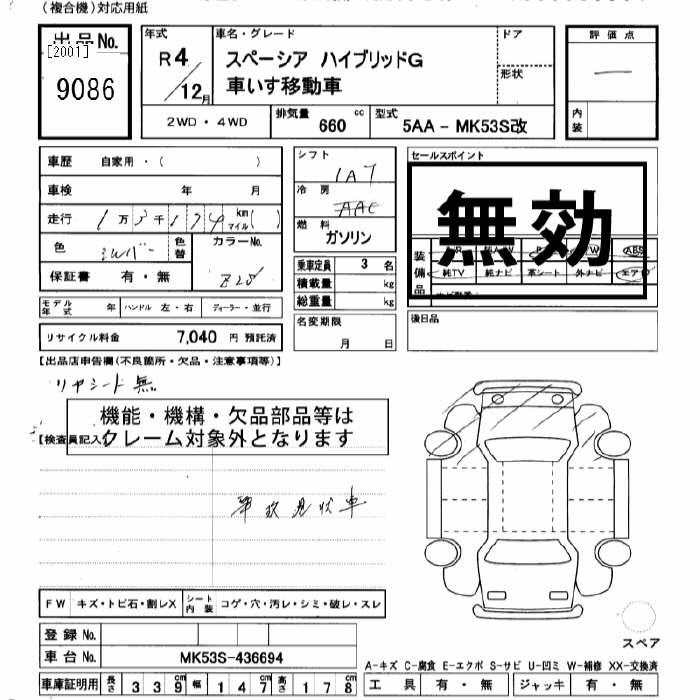 (複合機)対応用紙
出品No.
[2001]
9086
年式
R4/12月
車名・グレード
スペーシア ハイブリッドG
車いす移動車
ドア
形状
評価点
内装
2WD・4WD
排気量 660 cc
型式 5AA - MK53S改
車歴 自家用・( )
車検 年 月
走行 1万3千174 km マイル( )
色 シルバー 色替 カラーNo.
保証書 有・無
シフト
IAT
冷房
AAC
燃料
ガソリン
乗車定員 3 名
積載量 kg
総重量 kg
セールスポイント
無効
装備品
ABS
純TV 純ナビ 革シート 外ナビ
モデル年式 年 ハンドル 左・右 ディーラー・並行
リサイクル料金 7,040 円 預託済
名変期限
月 日
後日品
【出品店申告欄(不良箇所・欠品・注意事項等)】
リヤシート無
機能・機構・欠品部品等は
クレーム対象外となります
【検査員記入
現状車
FW キズ・トビ石・割レX シート内装 コゲ・穴・汚レ・シミ・破レ・スレ
登録No.
車台No. MK53S-436694
車庫証明用 長さ 339 幅 147 高さ 178
スペア
A-キズ C-腐食 E-エクボ S-サビ U-凹ミ W-補修 XX-交換済
工具 有・無 ジャッキ 有・無